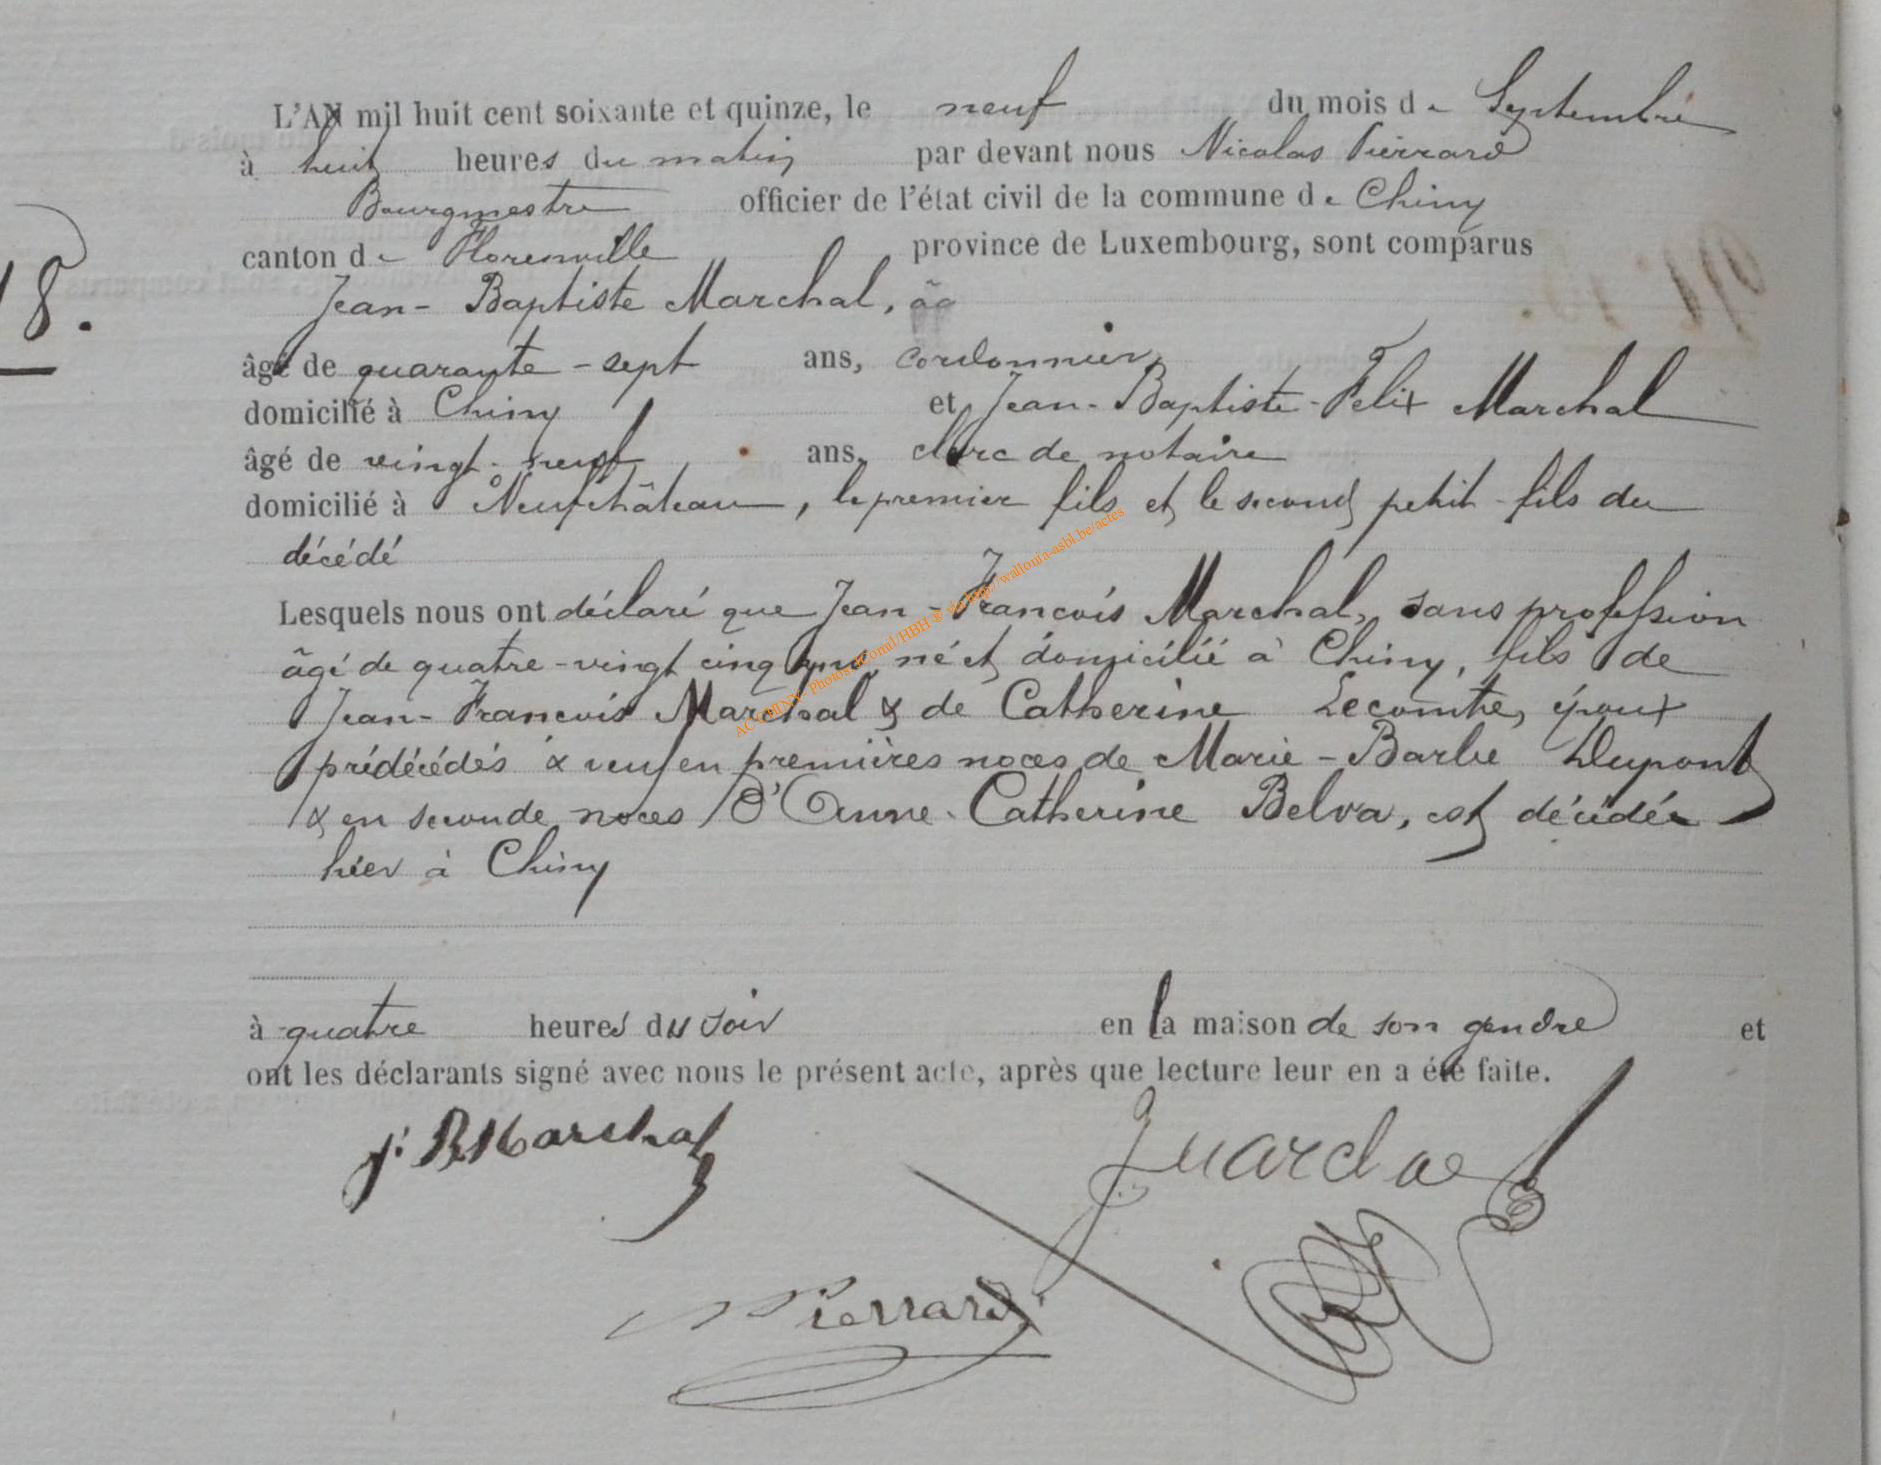 L'AN mil huit cent soixante et quinze, le neuf du mois de Septembre
à huit heures du matin par devant nous Nicolas Pierrard
Bourgmestre officier de l'état civil de la commune de Chiny
18.
canton de Florenville province de Luxembourg, sont comparus
Jean-Baptiste Marchal, âg
âgé de quarante-sept ans, cordonnier,
domicilié à Chiny et Jean-Baptiste-Felix Marchal
âgé de vingt-neuf ans, clerc de notaire
domicilié à Neufchâteau, le premier fils et le second petit-fils du
décédé
Lesquels nous ont déclaré que Jean-François Marchal, sans profession
âgé de quatre-vingt cinq ans, né et domicilié à Chiny, fils de
Jean-François Marchal & de Catherine Lecomte, époux
prédécédés & veuf en premières noces de Marie-Barbe Dupont
& en seconde noces d'Anne-Catherine Belva, est décédée
hier à Chiny
à quatre heures du soir en la maison de son gendre et
ont les déclarants signé avec nous le présent acte, après que lecture leur en a été faite.
J. B. Marchal
N Pierrard